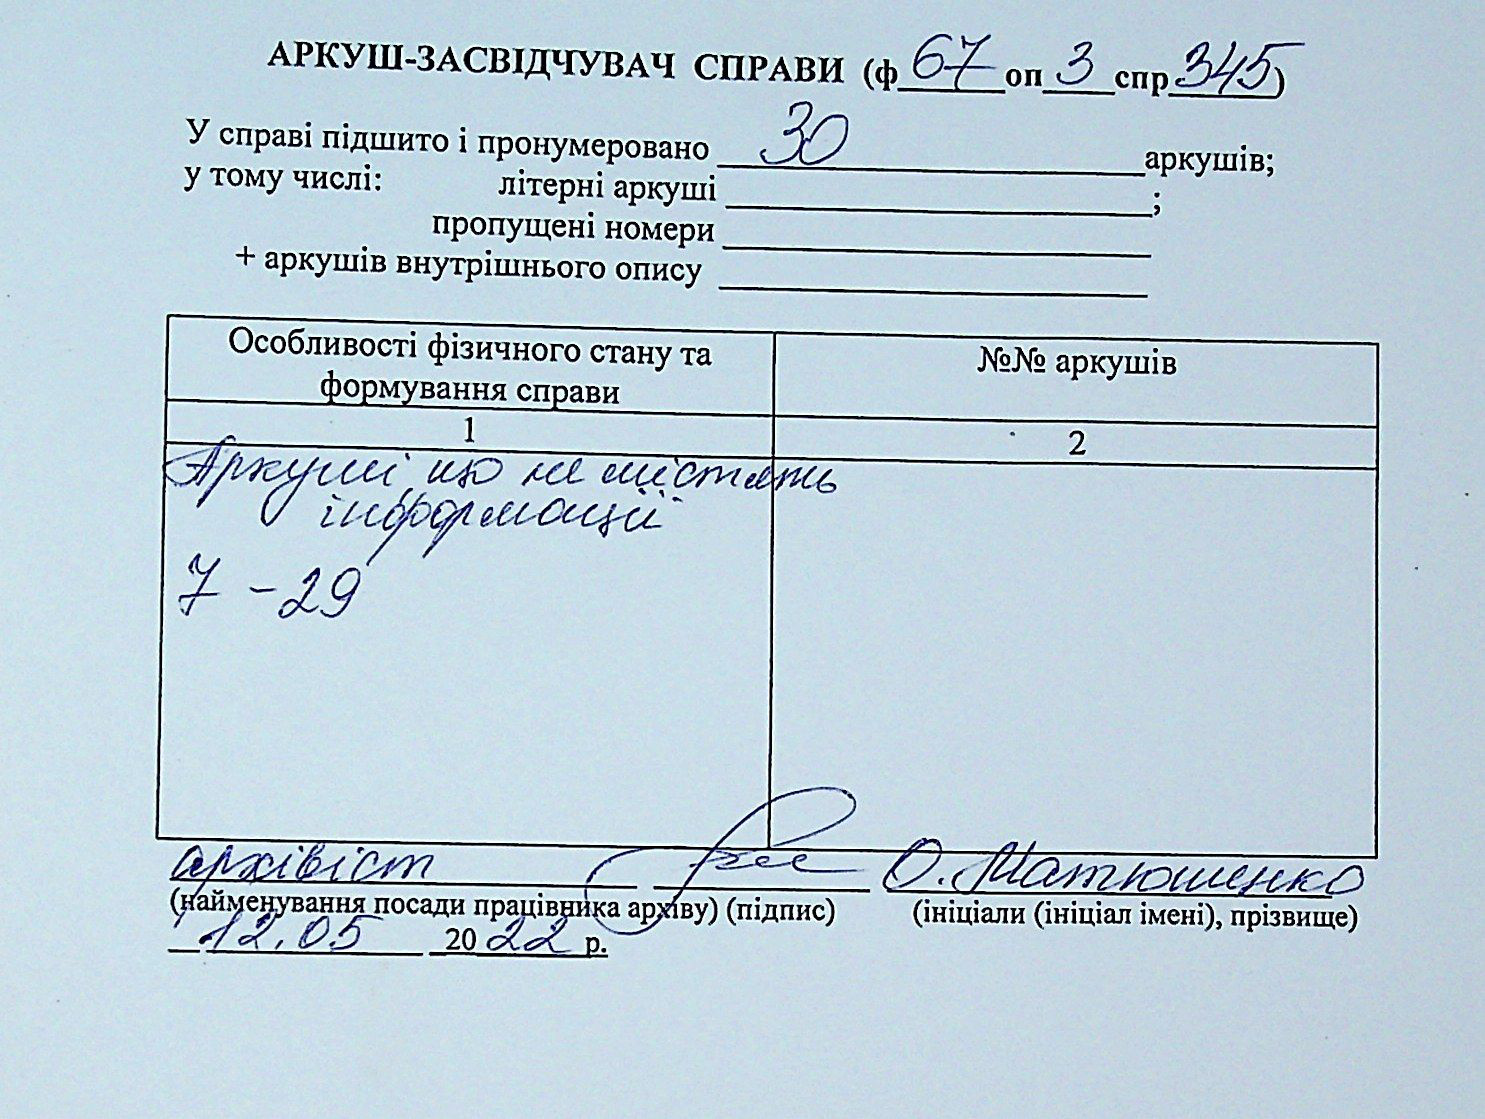 АРКУШ-ЗАСВІДЧУВАЧ СПРАВИ (ф 67 оп 3 спр 345)
У справі підшито і пронумеровано 30 аркушів;
у тому числі: літерні аркуші ;
пропущені номери
+ аркушів внутрішнього опису
Особливості фізичного стану та
формування справи
№№ аркушів
1
2
Аркуші, що не містять
інформації
7 - 29
архівіст О. Матюшенко
(найменування посади працівника архіву) (підпис) (ініціали (ініціал імені), прізвище)
12.05 2022 р.